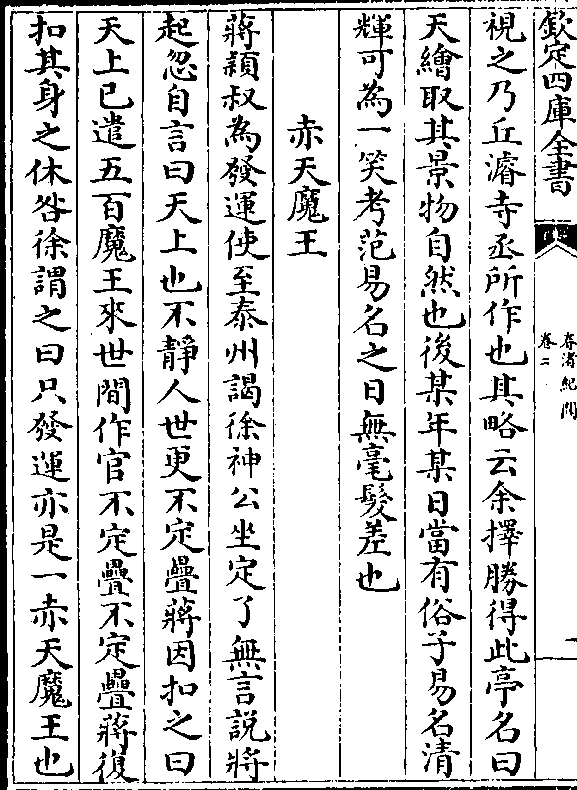 欽定四庫全書
春渚紀聞
卷二
視之乃丘濬寺丞所作也其略云余擇勝得此亭名曰
天繪取其景物自然也後某年某日當有俗子易名清
輝可為一笑考范易名之日無毫髮差也
赤天魔王
蔣穎叔為發運使至泰州謁徐神公坐定了無言說將
起忽自言曰天上也不靜人世更不定疊蔣因扣之曰
天上已遣五百魔王來世間作官不定疊不定疊蔣復
扣其身之休咎徐謂之曰只發運亦是一赤天魔王也